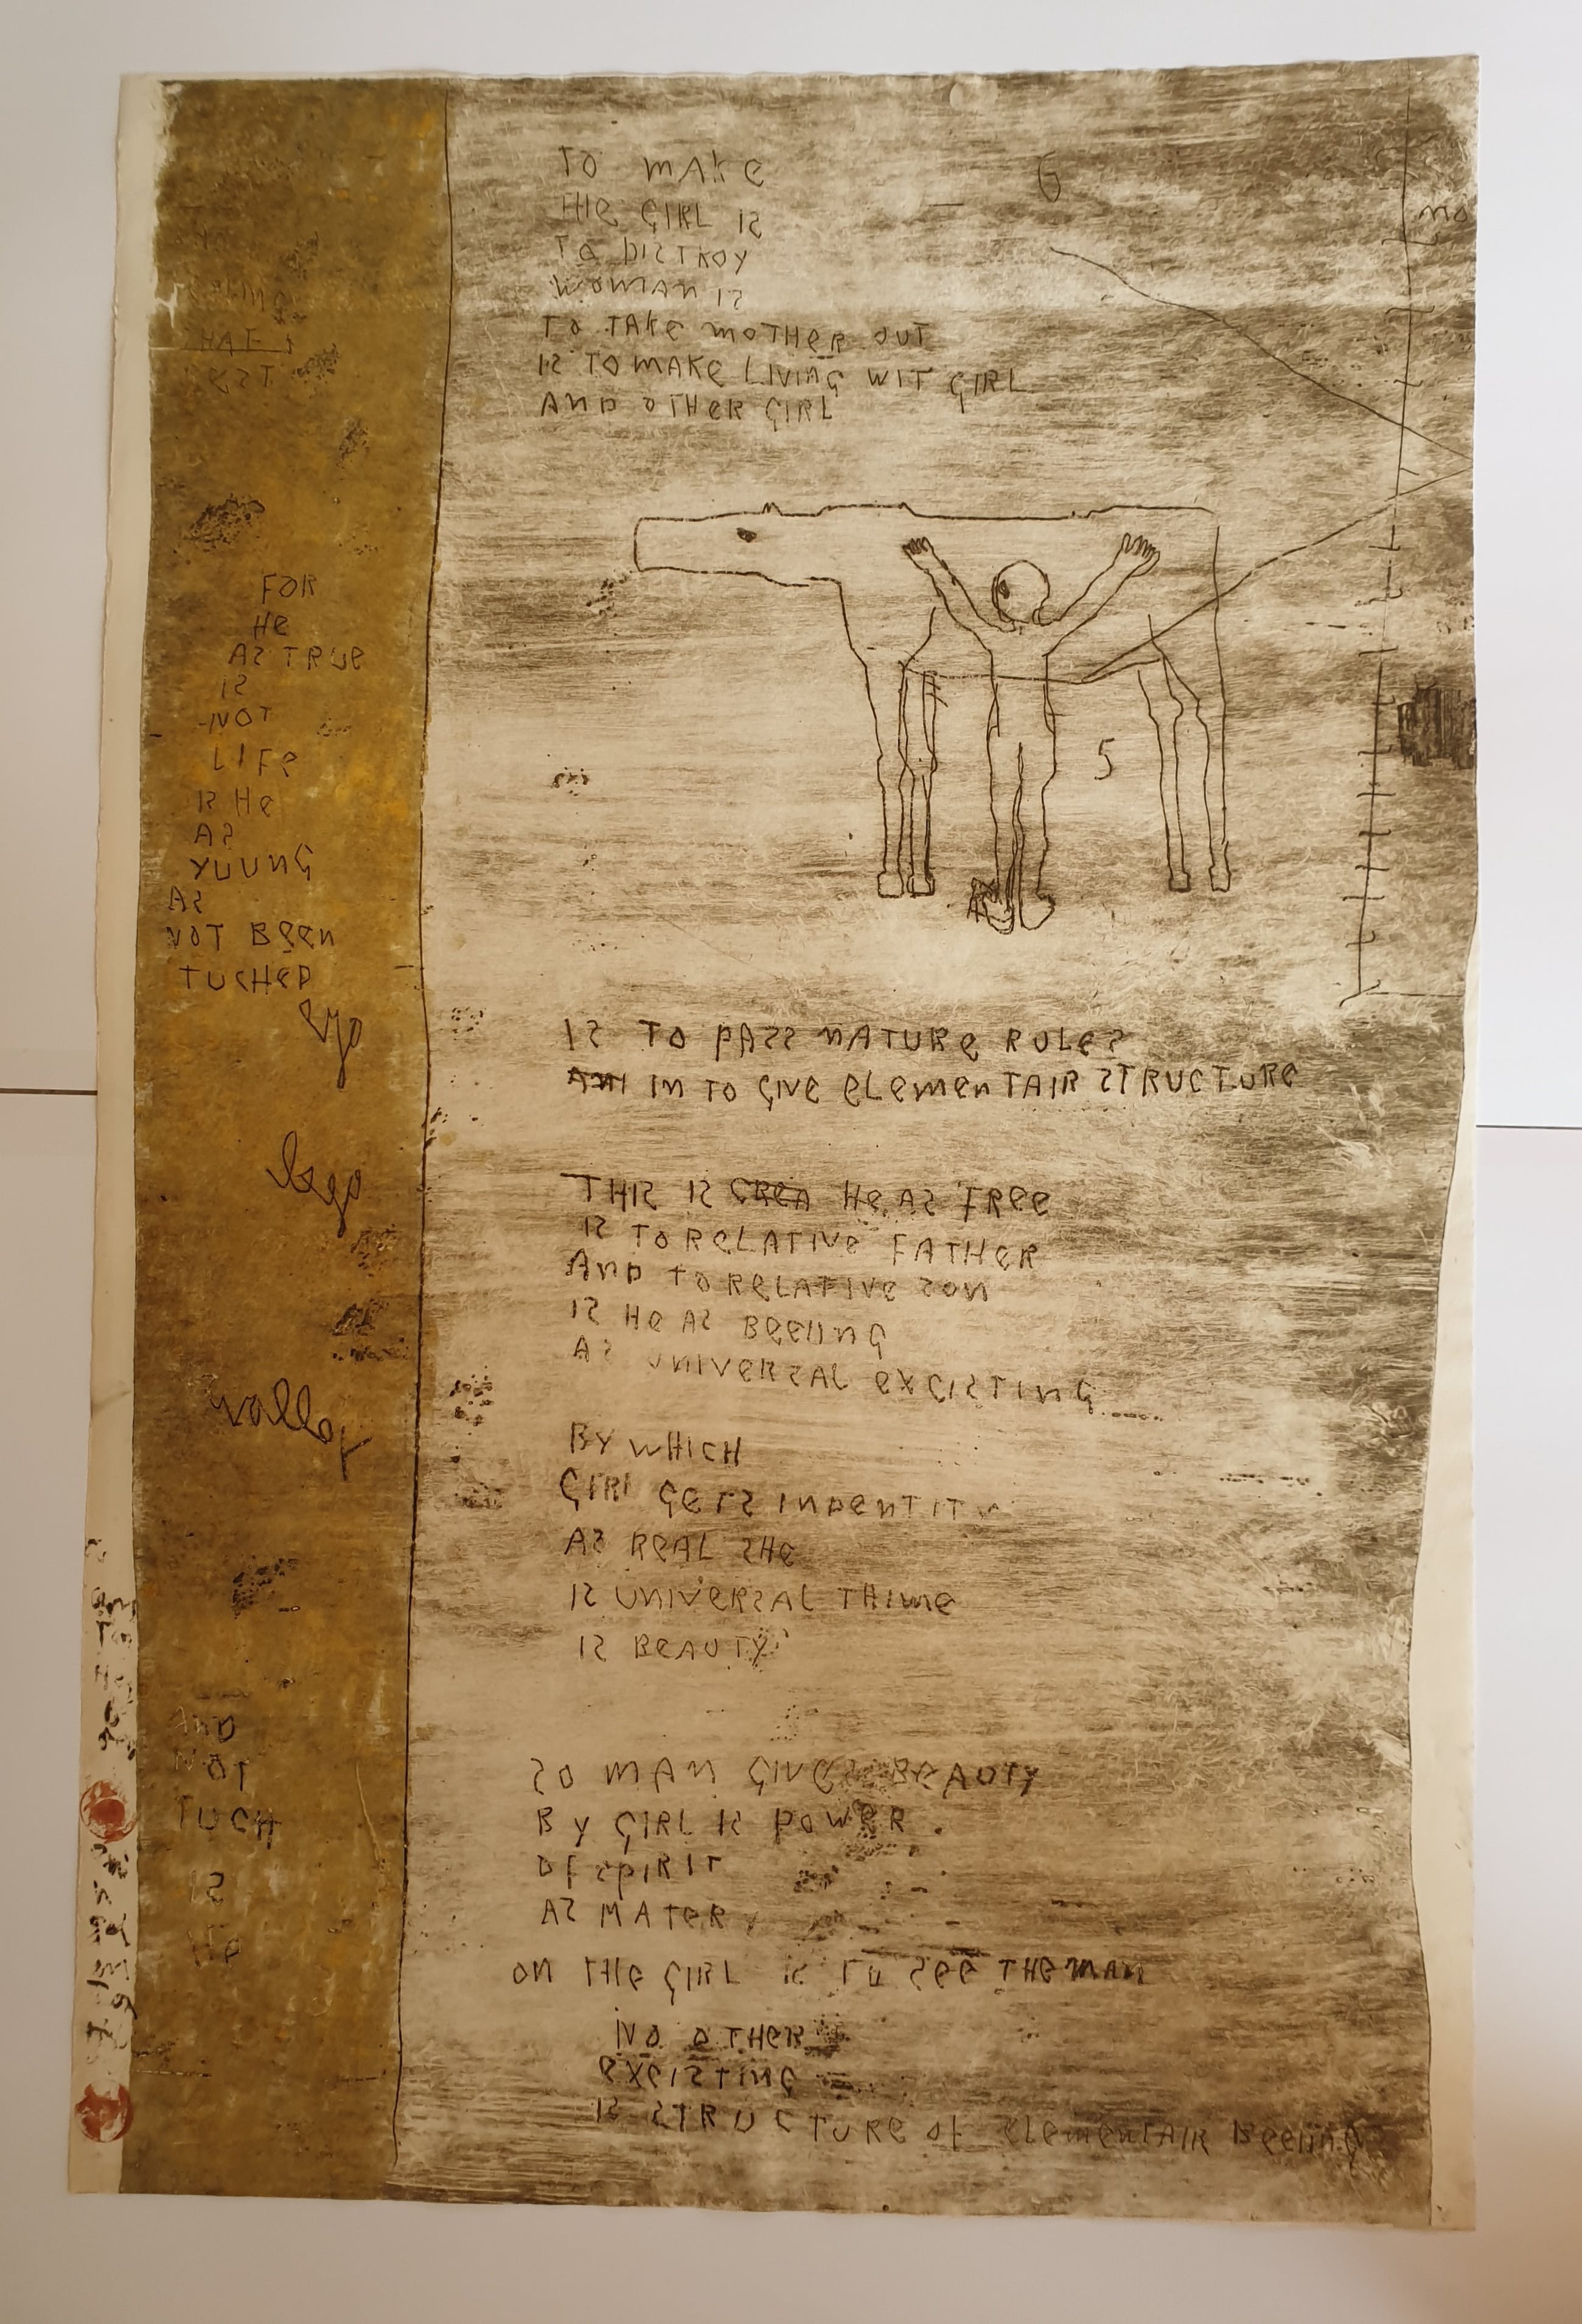 TO MAKE
THE GIRL IS
TO DISTROY
WOMAN IS
TO TAKE MOTHER OUT
IS TO MAKE LIVING WIT GIRL
AND OTHER GIRL
6
mo
HAT
EST
FOR
HE
AS TRUE
IS
NOT
LIFE
IS HE
AS
YUUNG
AS
NOT BEEN
TUCHED
5
IS TO PASS NATURE RULES
IN TO GIVE ELEMENTAIR STRUCTURE
THIS IS HE AS FREE
IS TO RELATIVE FATHER
AND TO RELATIVE SON
IS HE AS BEEIING
AS UNIVERSAL EXCISTING
BY WHICH
GIRL GETS INDENTITY
AS REAL SHE
IS UNIVERSAL THIME
IS BEAUTY
AND
NOT
TUCH
IS
HE
SO MAN GIVES BEAUTY
BY GIRL IS POWER
OF SPIRIT
AS MATER
ON THE GIRL IS TO SEE THE MAN
NO OTHER
EXCISTING
IS STRUCTURE OF ELEMENTAIR BEEIING